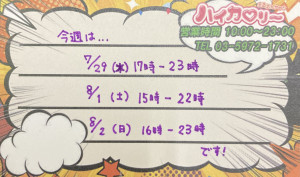 ハイカロリー
営業時間 10:00～23:00
TEL 03-5972-1791
今週は…
7/29（水）17時～23時
8/1（土）15時～22時
8/2（日）16時～23時
です!